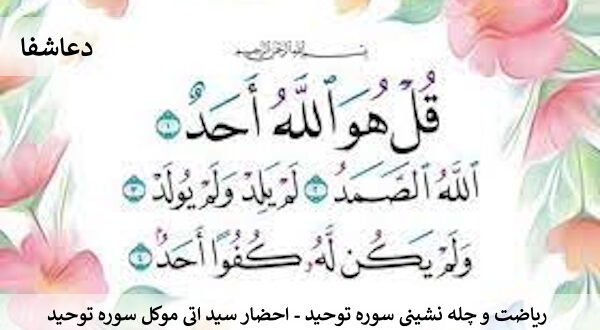 دعاشفا
بسم الله الرحمن الرحيم
قُلْ هُوَ ٱللَّهُ أَحَدٌ ١
ٱللَّهُ ٱلصَّمَدُ ٢ لَمْ يَلِدْ وَلَمْ يُولَدْ ٣
وَلَمْ يَكُن لَّهُۥ كُفُوًا أَحَدٌۢ ٤
ریاضت و چله نشینی سوره توحید - احضار سید اتی موکل سوره توحید